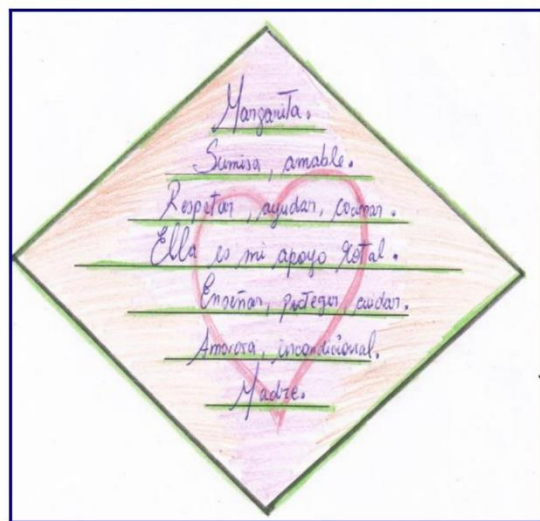 Margarita.
Sumisa, amable.
Respetar, ayudar, cocinar.
Ella es mi apoyo total.
Enseñar, proteger, cuidar.
Amorosa, incondicional.
Madre.